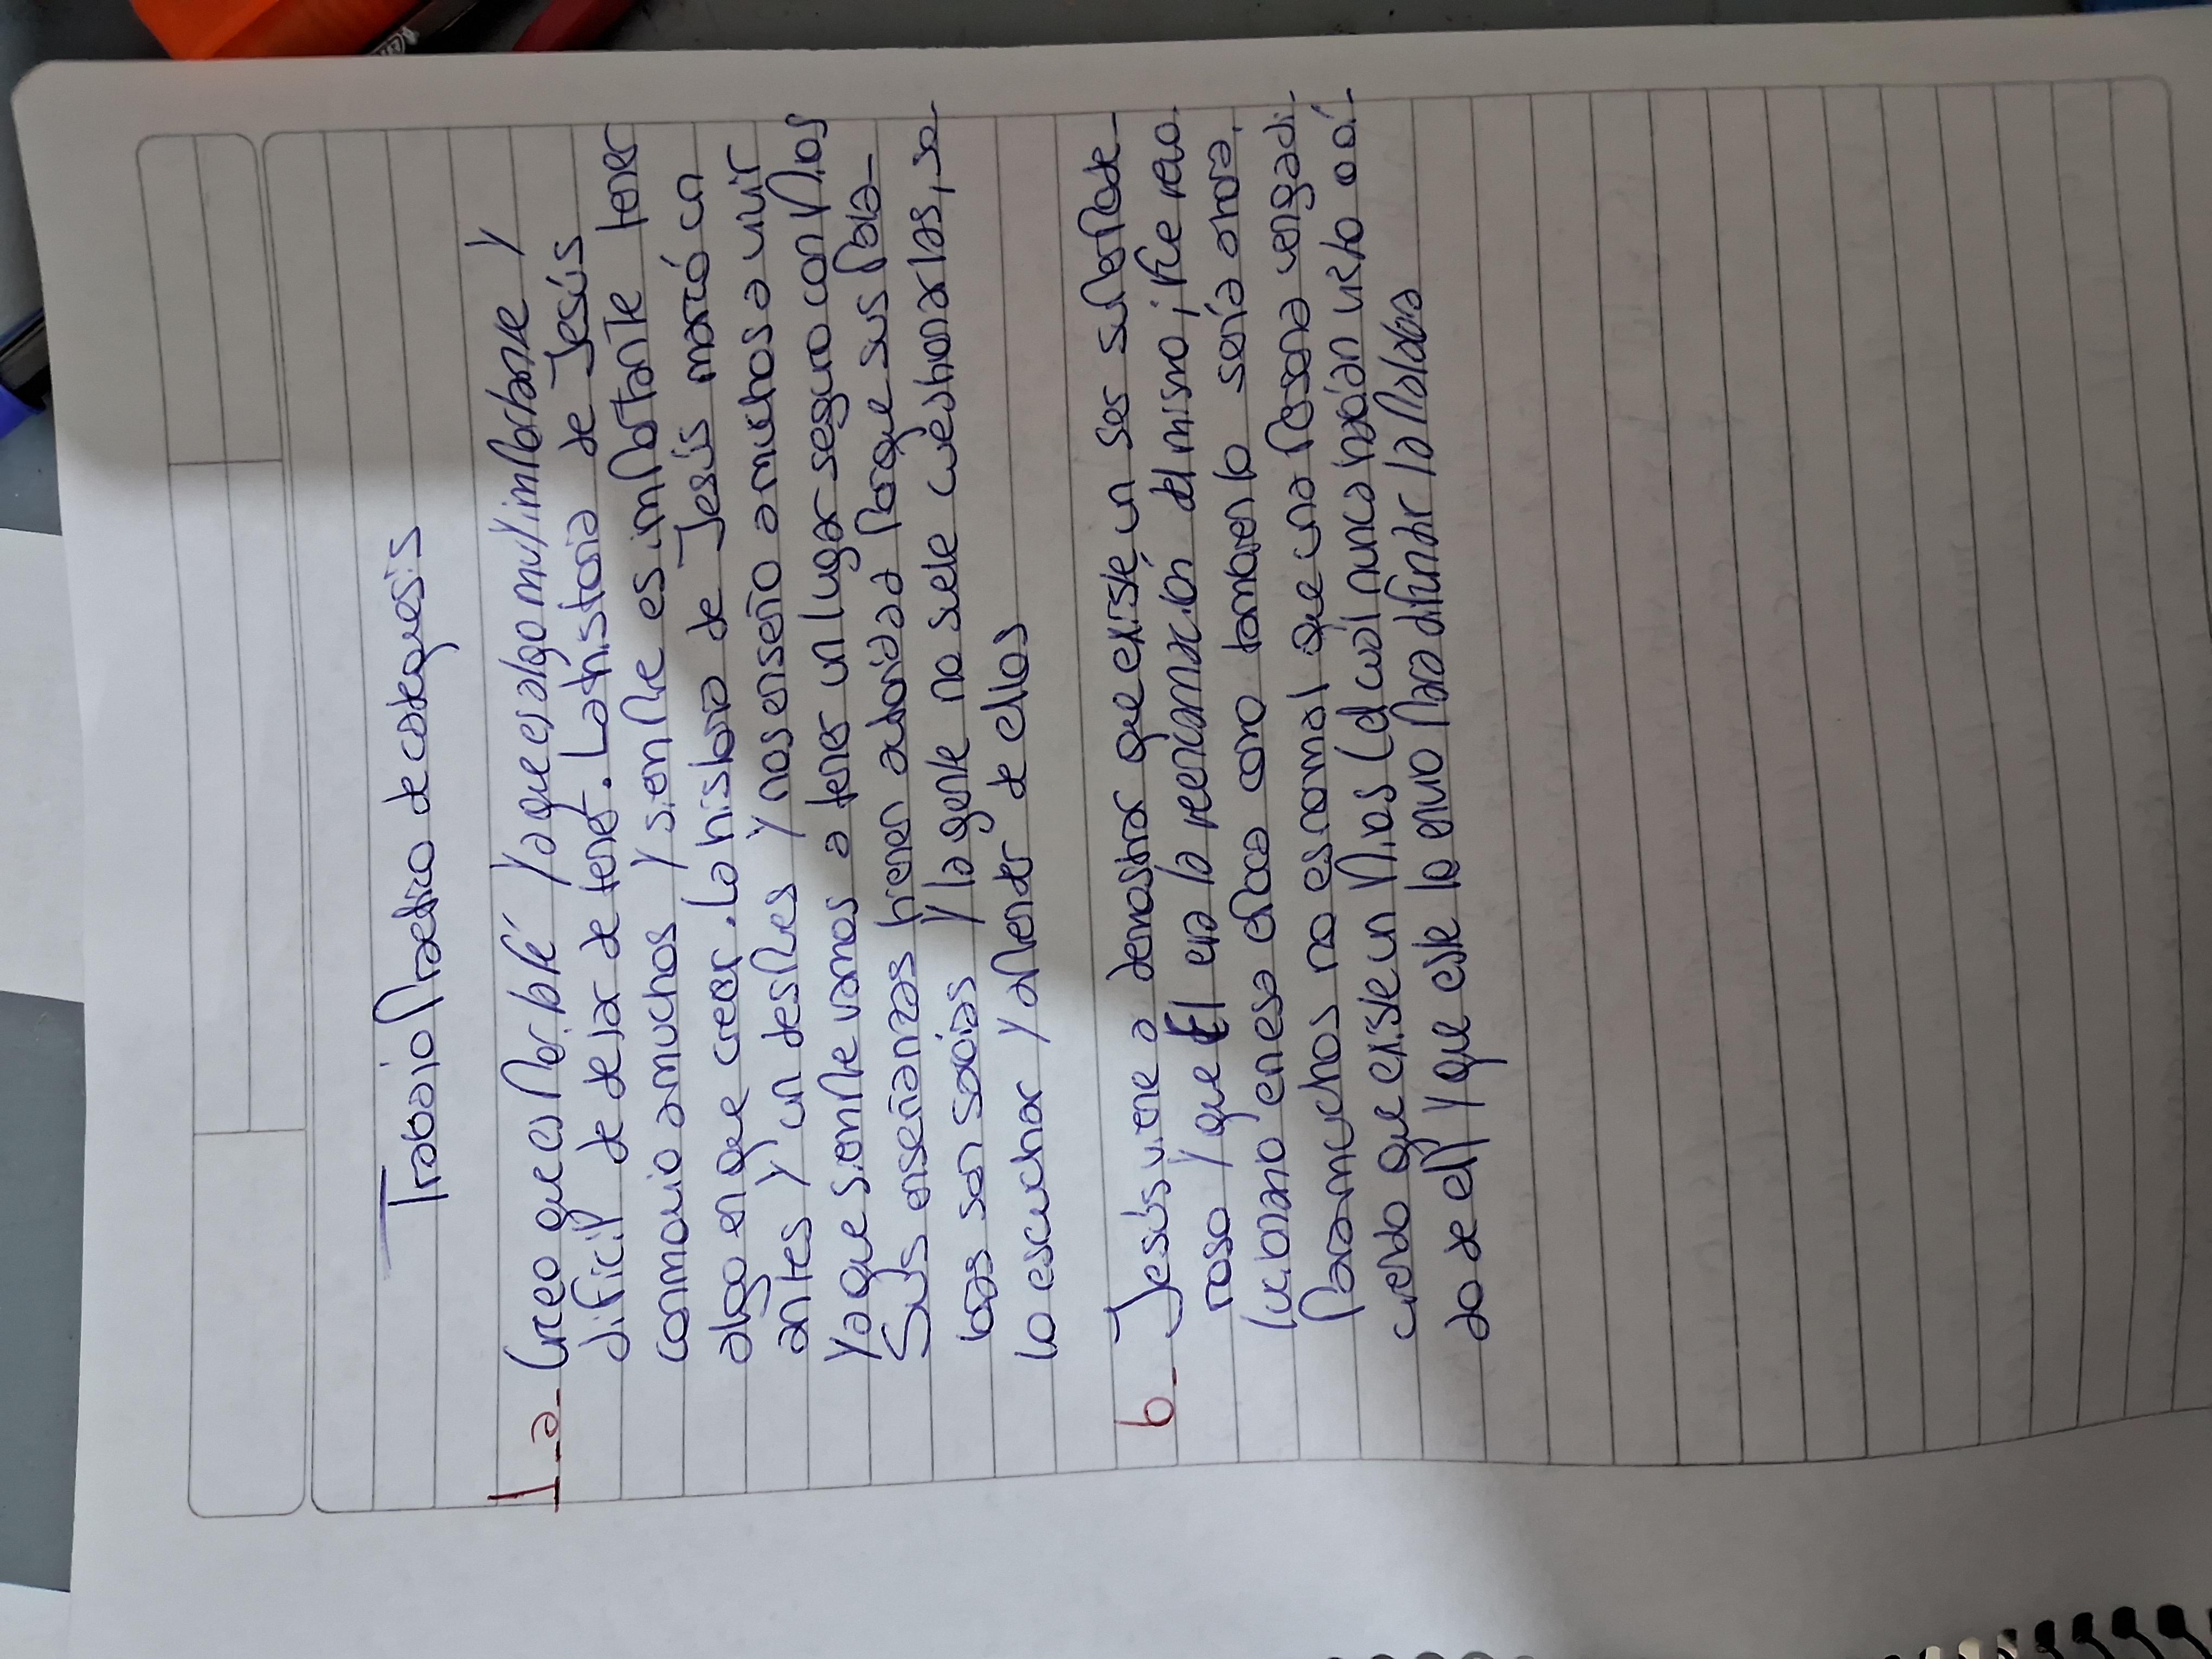 Trabajo Practico de catequesis
1-a- Creo que es por la fé ya que es algo muy importante y
dificil de dejar de tener. La historia de Jesús
conmovio a muchos y siempre es importante tener
algo en que creer. La historia de Jesús marcó un
antes y un despues y nos enseño a muchos a vivir
ya que siempre vamos a tener un lugar seguro con Dios
Sus enseñanzas tienen autoridad porque sus pala-
bras son sabias y la gente no suele cuestionarlas, so-
lo escuchar y aprender de ellos
b- Jesús viene a demostrar que existe un ser superpode-
roso y que El era la reencarnación del mismo; fue revo-
lucionario en esa epoca como tambien lo sería ahora.
Para muchos no es normal que una persona venga di-
ciendo que existe un Dios (el cuál nunca habían visto u oí-
do de el) y que este lo envio para difundir la palabra